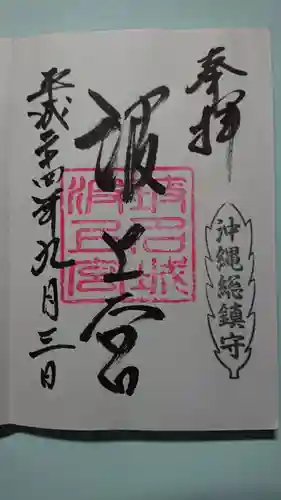 奉拝
沖縄総鎮守
波上宮
波上宮
平成二十四年九月三日